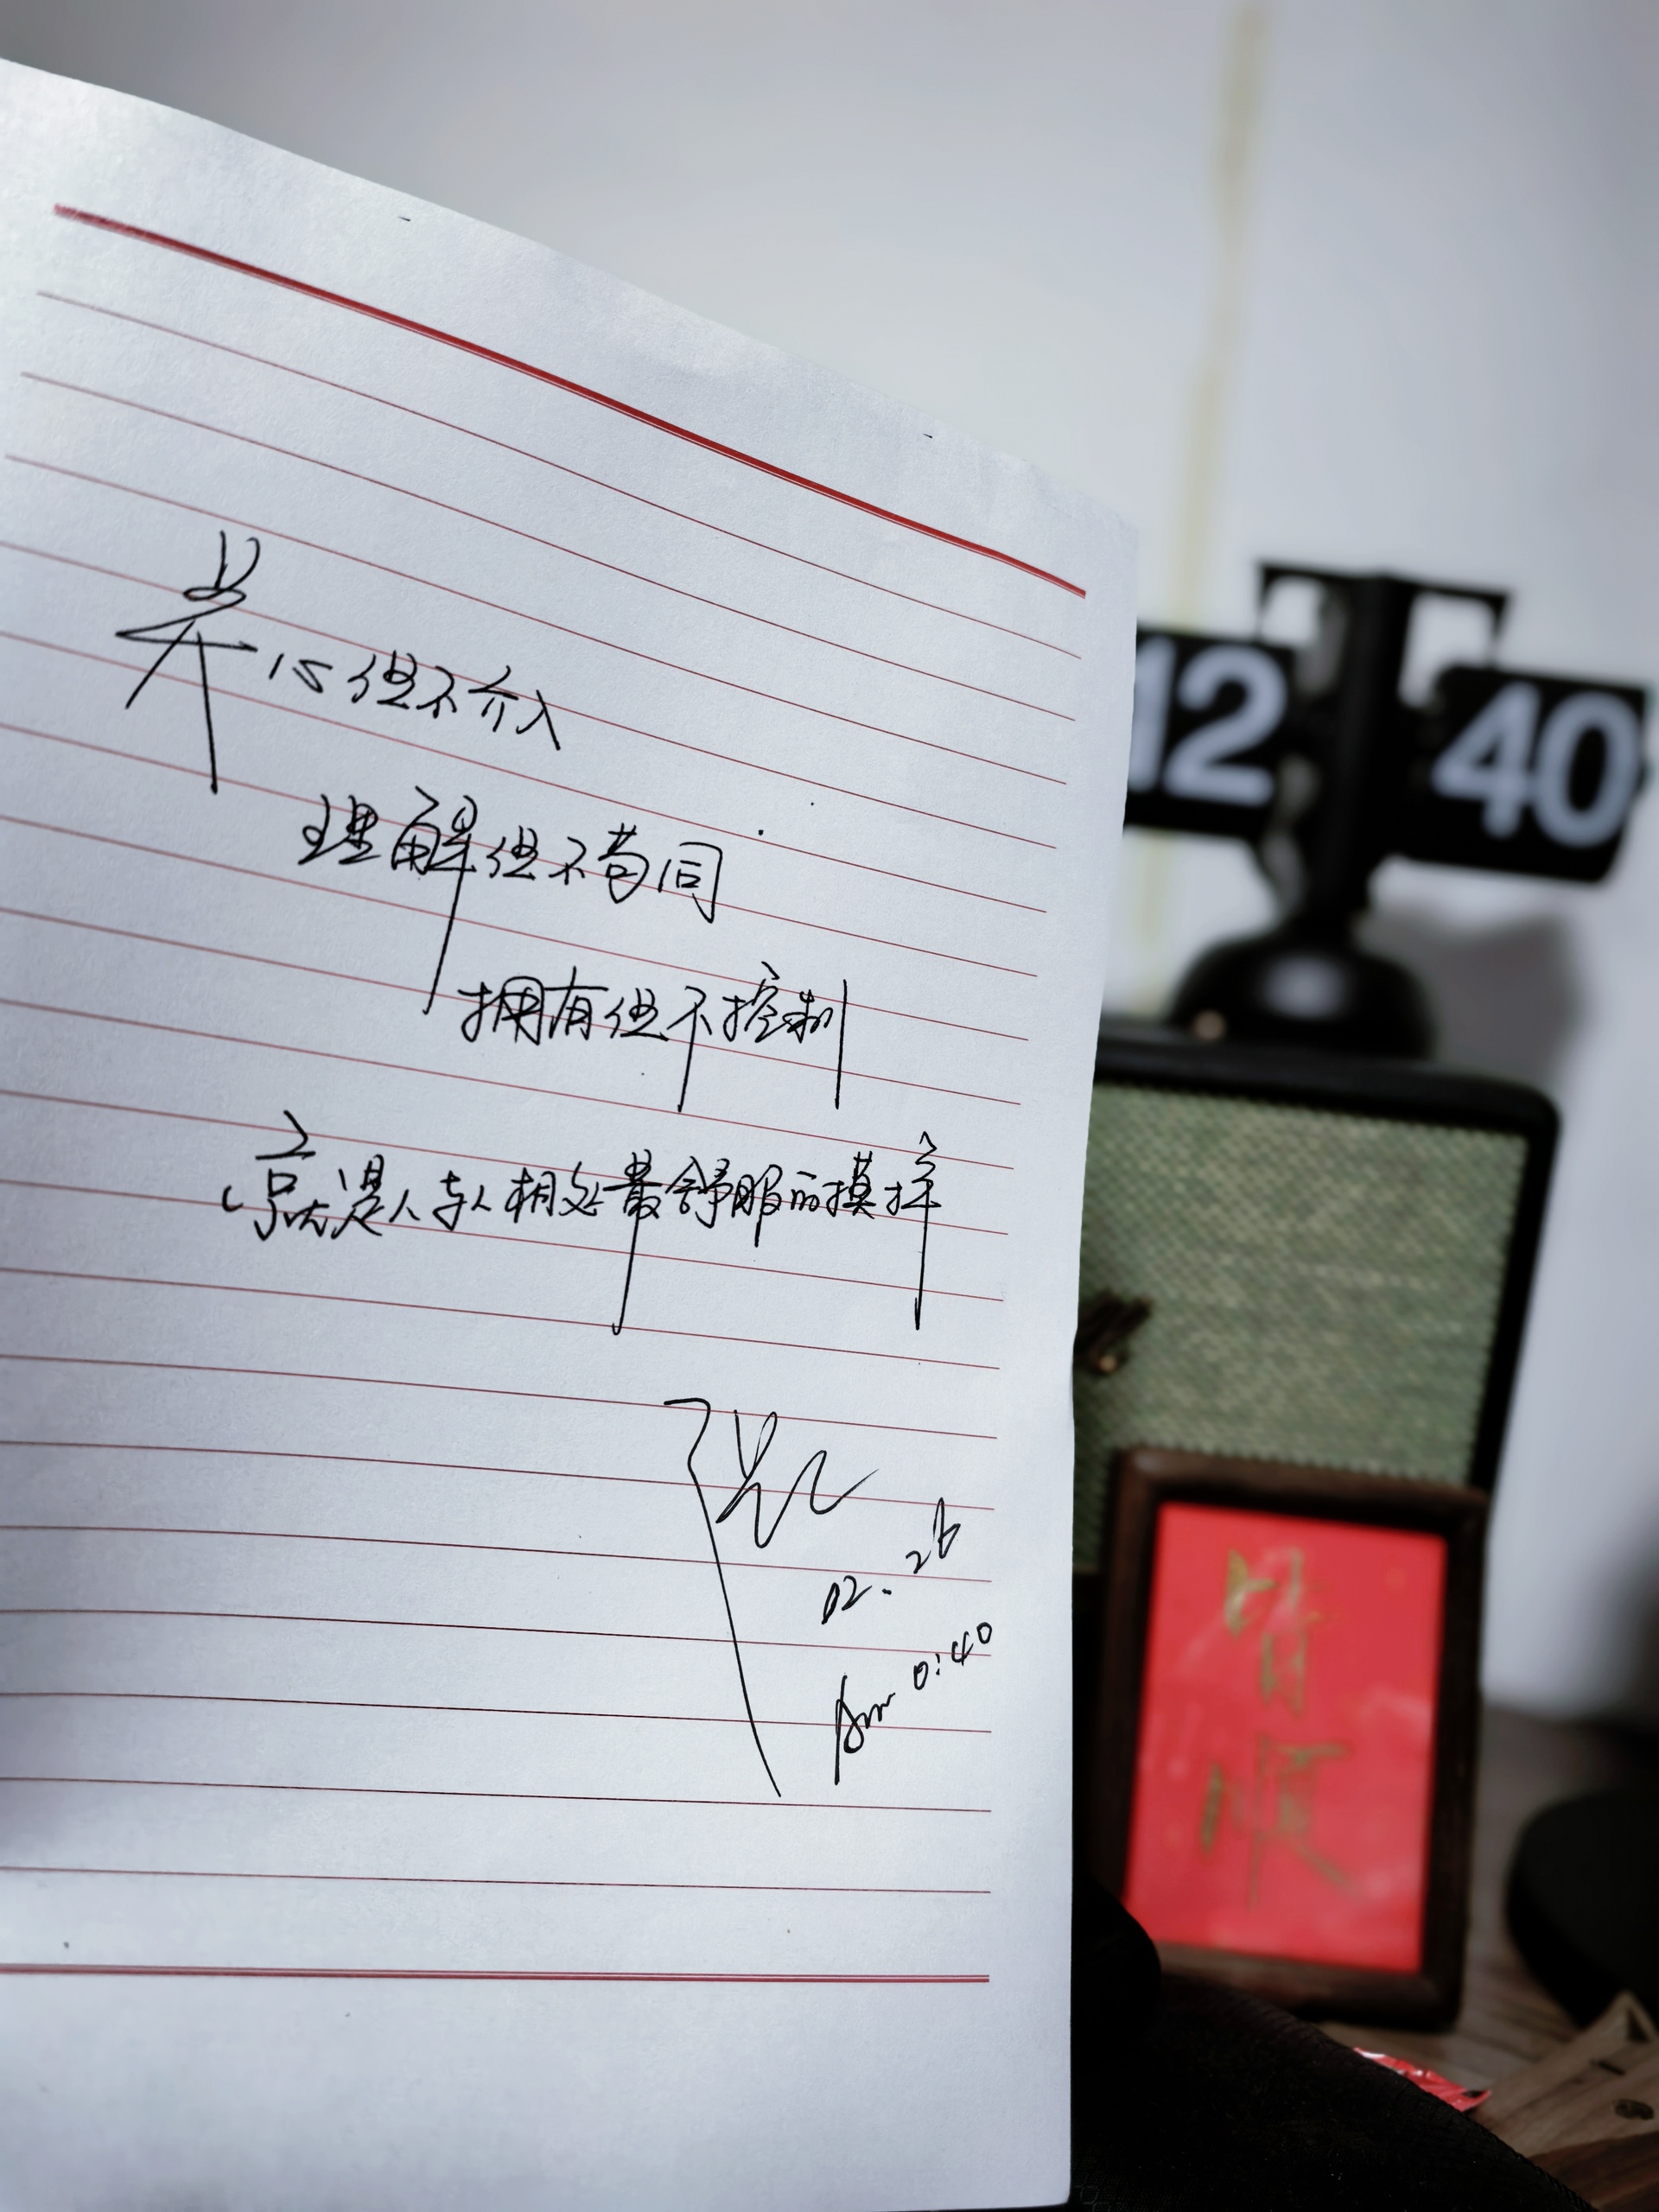 关心但不介入
理解但不苟同
拥有但不控制
就是人与人相处最舒服的模样
02.26
Am 0:40
12 40
皆
顺